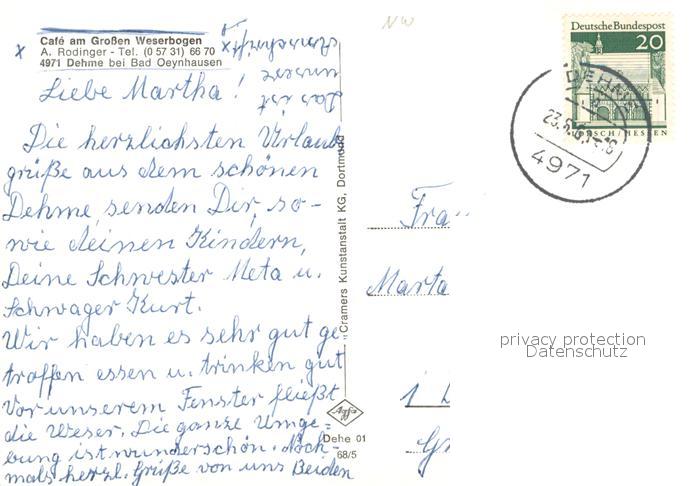 Café am Großen Weserbogen
A. Rodinger - Tel. (0 57 31) 66 70
4971 Dehme bei Bad Oeynhausen
Das ist
unsere
Anschrift
Liebe Martha!
Die herzlichsten Urlaub
grüße aus dem schönen
Dehme, senden Dir, so-
wie deinen Kindern,
Deine Schwester Meta u.
Schwager Kurt.
Wir haben es sehr gut ge
troffen essen u. trinken gut
Vor unserem Fenster fließt
die Weser. Die ganze Umge=
bung ist wunderschön. Noch-
mals herzl. Grüße von uns Beiden
Cramers Kunstanstalt KG, Dortmund
Agfa
Dehe 01
68/5
NW
Deutsche Bundespost
20
LORSCH/HESSEN
DEHME
4971
Fra
Marta
1
privacy protection
Datenschutz